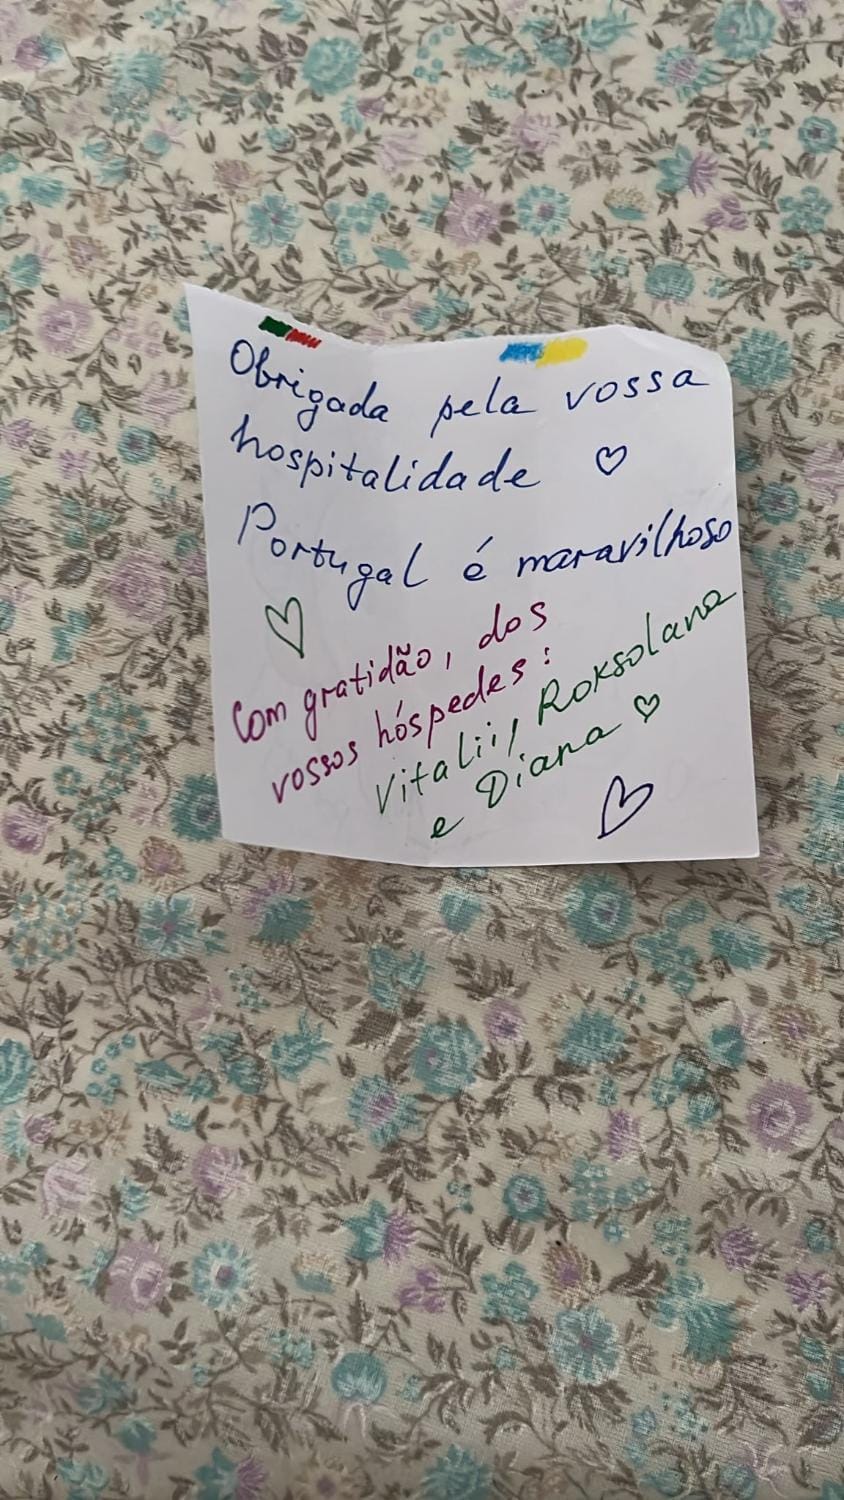 Obrigada pela vossa
hospitalidade ♡
Portugal é maravilhoso
♡
Com gratidão, dos
vossos hóspedes:
Vitalii, Roksolana
e Diana ♡
♡